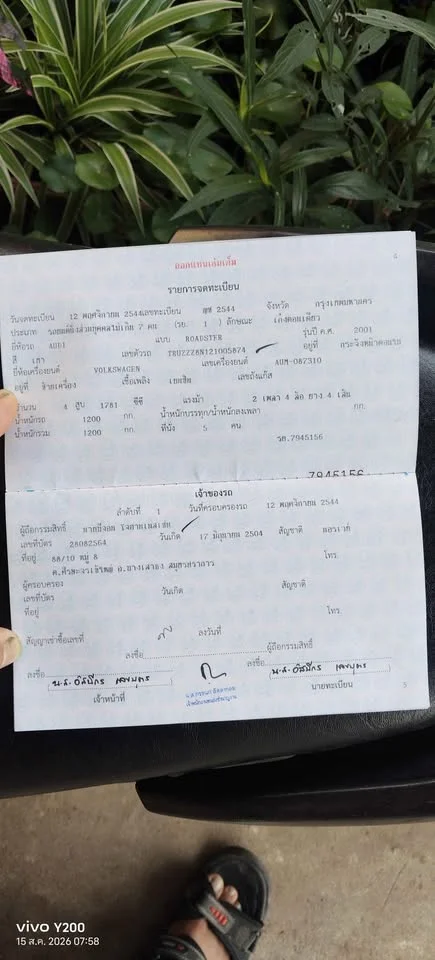 ออกแทนเล่มเต็ม
4
รายการจดทะเบียน
วันจดทะเบียน 12 พฤศจิกายน 2544 เลขทะเบียน 2544 จังหวัด กรุงเทพมหานคร
ประเภท รถยนต์นั่งส่วนบุคคลไม่เกิน 7 คน (รย. 1 ) ลักษณะ เก๋งตอนเดียว
ยี่ห้อรถ AUDI แบบ ROADSTER รุ่นปี ค.ศ. 2001
สี เทา เลขตัวรถ TRUZZZ8N121005874 อยู่ที่
ยี่ห้อเครื่องยนต์ VOLKSWAGEN เลขเครื่องยนต์ AUM-087310
อยู่ที่ ข้างเครื่อง เชื้อเพลิง เบนซิน เลขถังแก๊ส
จำนวน 4 สูบ 1781 ซีซี แรงม้า 2 เพลา 4 ล้อ ยาง 4 เส้น
น้ำหนักรถ 1200 กก. น้ำหนักบรรทุก/น้ำหนักลงเพลา กก.
น้ำหนักรวม 1200 กก. ที่นั่ง 5 คน
รย.7945156
7945156
เจ้าของรถ
ลำดับที่ 1 วันที่ครอบครองรถ 12 พฤศจิกายน 2544
ผู้ถือกรรมสิทธิ์
เลขที่บัตร 28082564 วันเกิด 17 มิถุนายน 2504 สัญชาติ
ที่อยู่ 88/10 หมู่ 8 โทร
อ.บางเสาธง สมุทรปราการ
ผู้ครอบครอง
เลขที่บัตร วันเกิด สัญชาติ
ที่อยู่ โทร
สัญญาเช่าซื้อเลขที่ ลงวันที่ ผู้ถือกรรมสิทธิ์
ลงชื่อ
ลงชื่อ ลงชื่อ
เจ้าหน้าที่ นายทะเบียน
5
vivo Y200
15 ส.ค. 2026 07:58